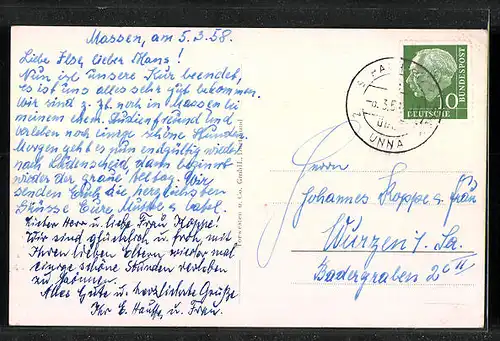 Massen, am 5.3.58.
Liebe Ilse, lieber Hans!
Nun ist unsere Kur beendet,
es ist uns alles sehr gut bekommen.
Wir sind z. Zt. noch in Massen bei
meinem ehem. Studienfreund und
verleben noch einige schöne Stunden.
Morgen geht es nun endgültig wieder
nach Lüdenscheid, dann beginnt
wieder der graue Alltag. Wir
senden Euch die herzlichsten
Grüsse Eure
Lieber Herr u. liebe Frau Koppe!
Wir sind glücklich u. froh, mit
Ihren lieben Eltern wieder mal
einige schöne Stunden verleben
zu können.
Alles Gute u. herzlichste Grüße
Ihr E. u. Frau.
u. Co. GmbH.
DEUTSCHE
BUNDESPOST
10
UNNA
Herrn
Johannes Koppe u. Frau
Wurzen / Sa.
Badergraben 2 c II